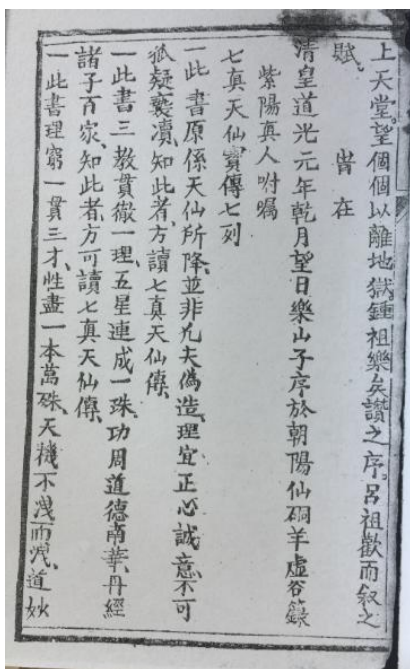 上天堂。望個個以離地獄。鍾祖樂矣讚之序。呂祖歡而叙之
賦。 旹在
清皇道光元年乾月望日樂山子序於朝陽仙硐羊虛谷籙
紫陽真人咐囑
七真天仙寳傳七列
一此書原係天仙所降、並非凢夫偽造、理宜正心誠意、不可
狐疑褻凟、知此者、方讀七真天仙傳、
一此書三教貫徹一理、五星連成一珠、功周道德南華、丹經
諸子百家、知此者、方可讀七真天仙傳、
一此書理窮一貫三才、性盡一本萬殊、天機不洩而洩、道妙